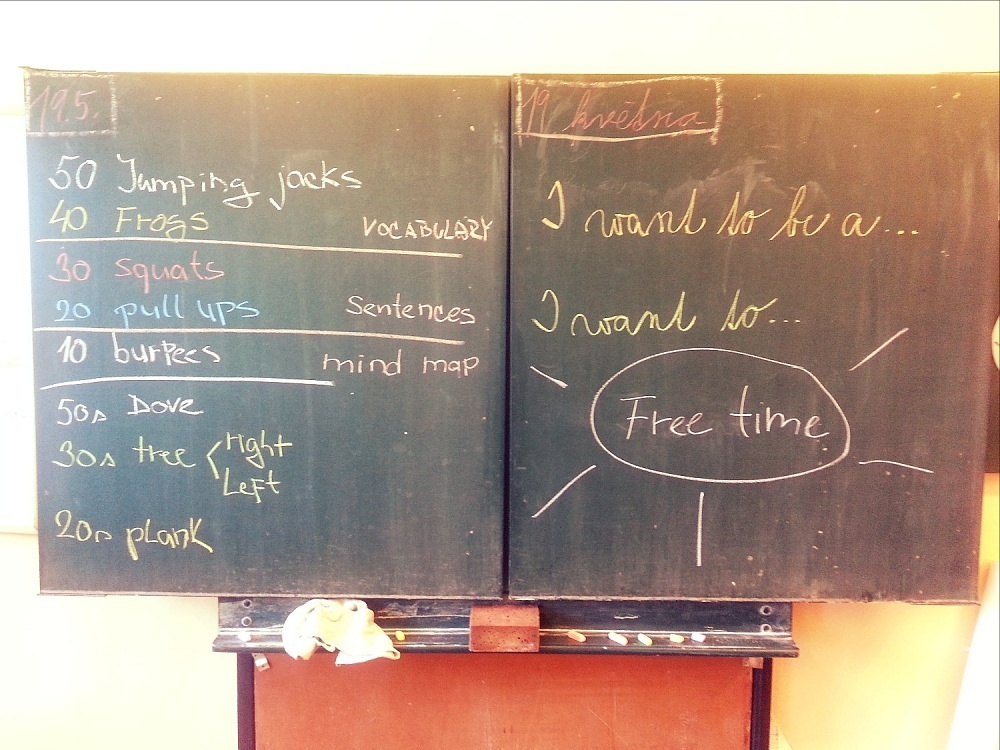 19.5.
50 Jumping jacks
40 Frogs VOCABULARY
30 squats
20 pull ups Sentences
10 burpees mind map
50s Dove
30s tree < right
Left
20s plank
19 května
I want to be a...
I want to...
Free time